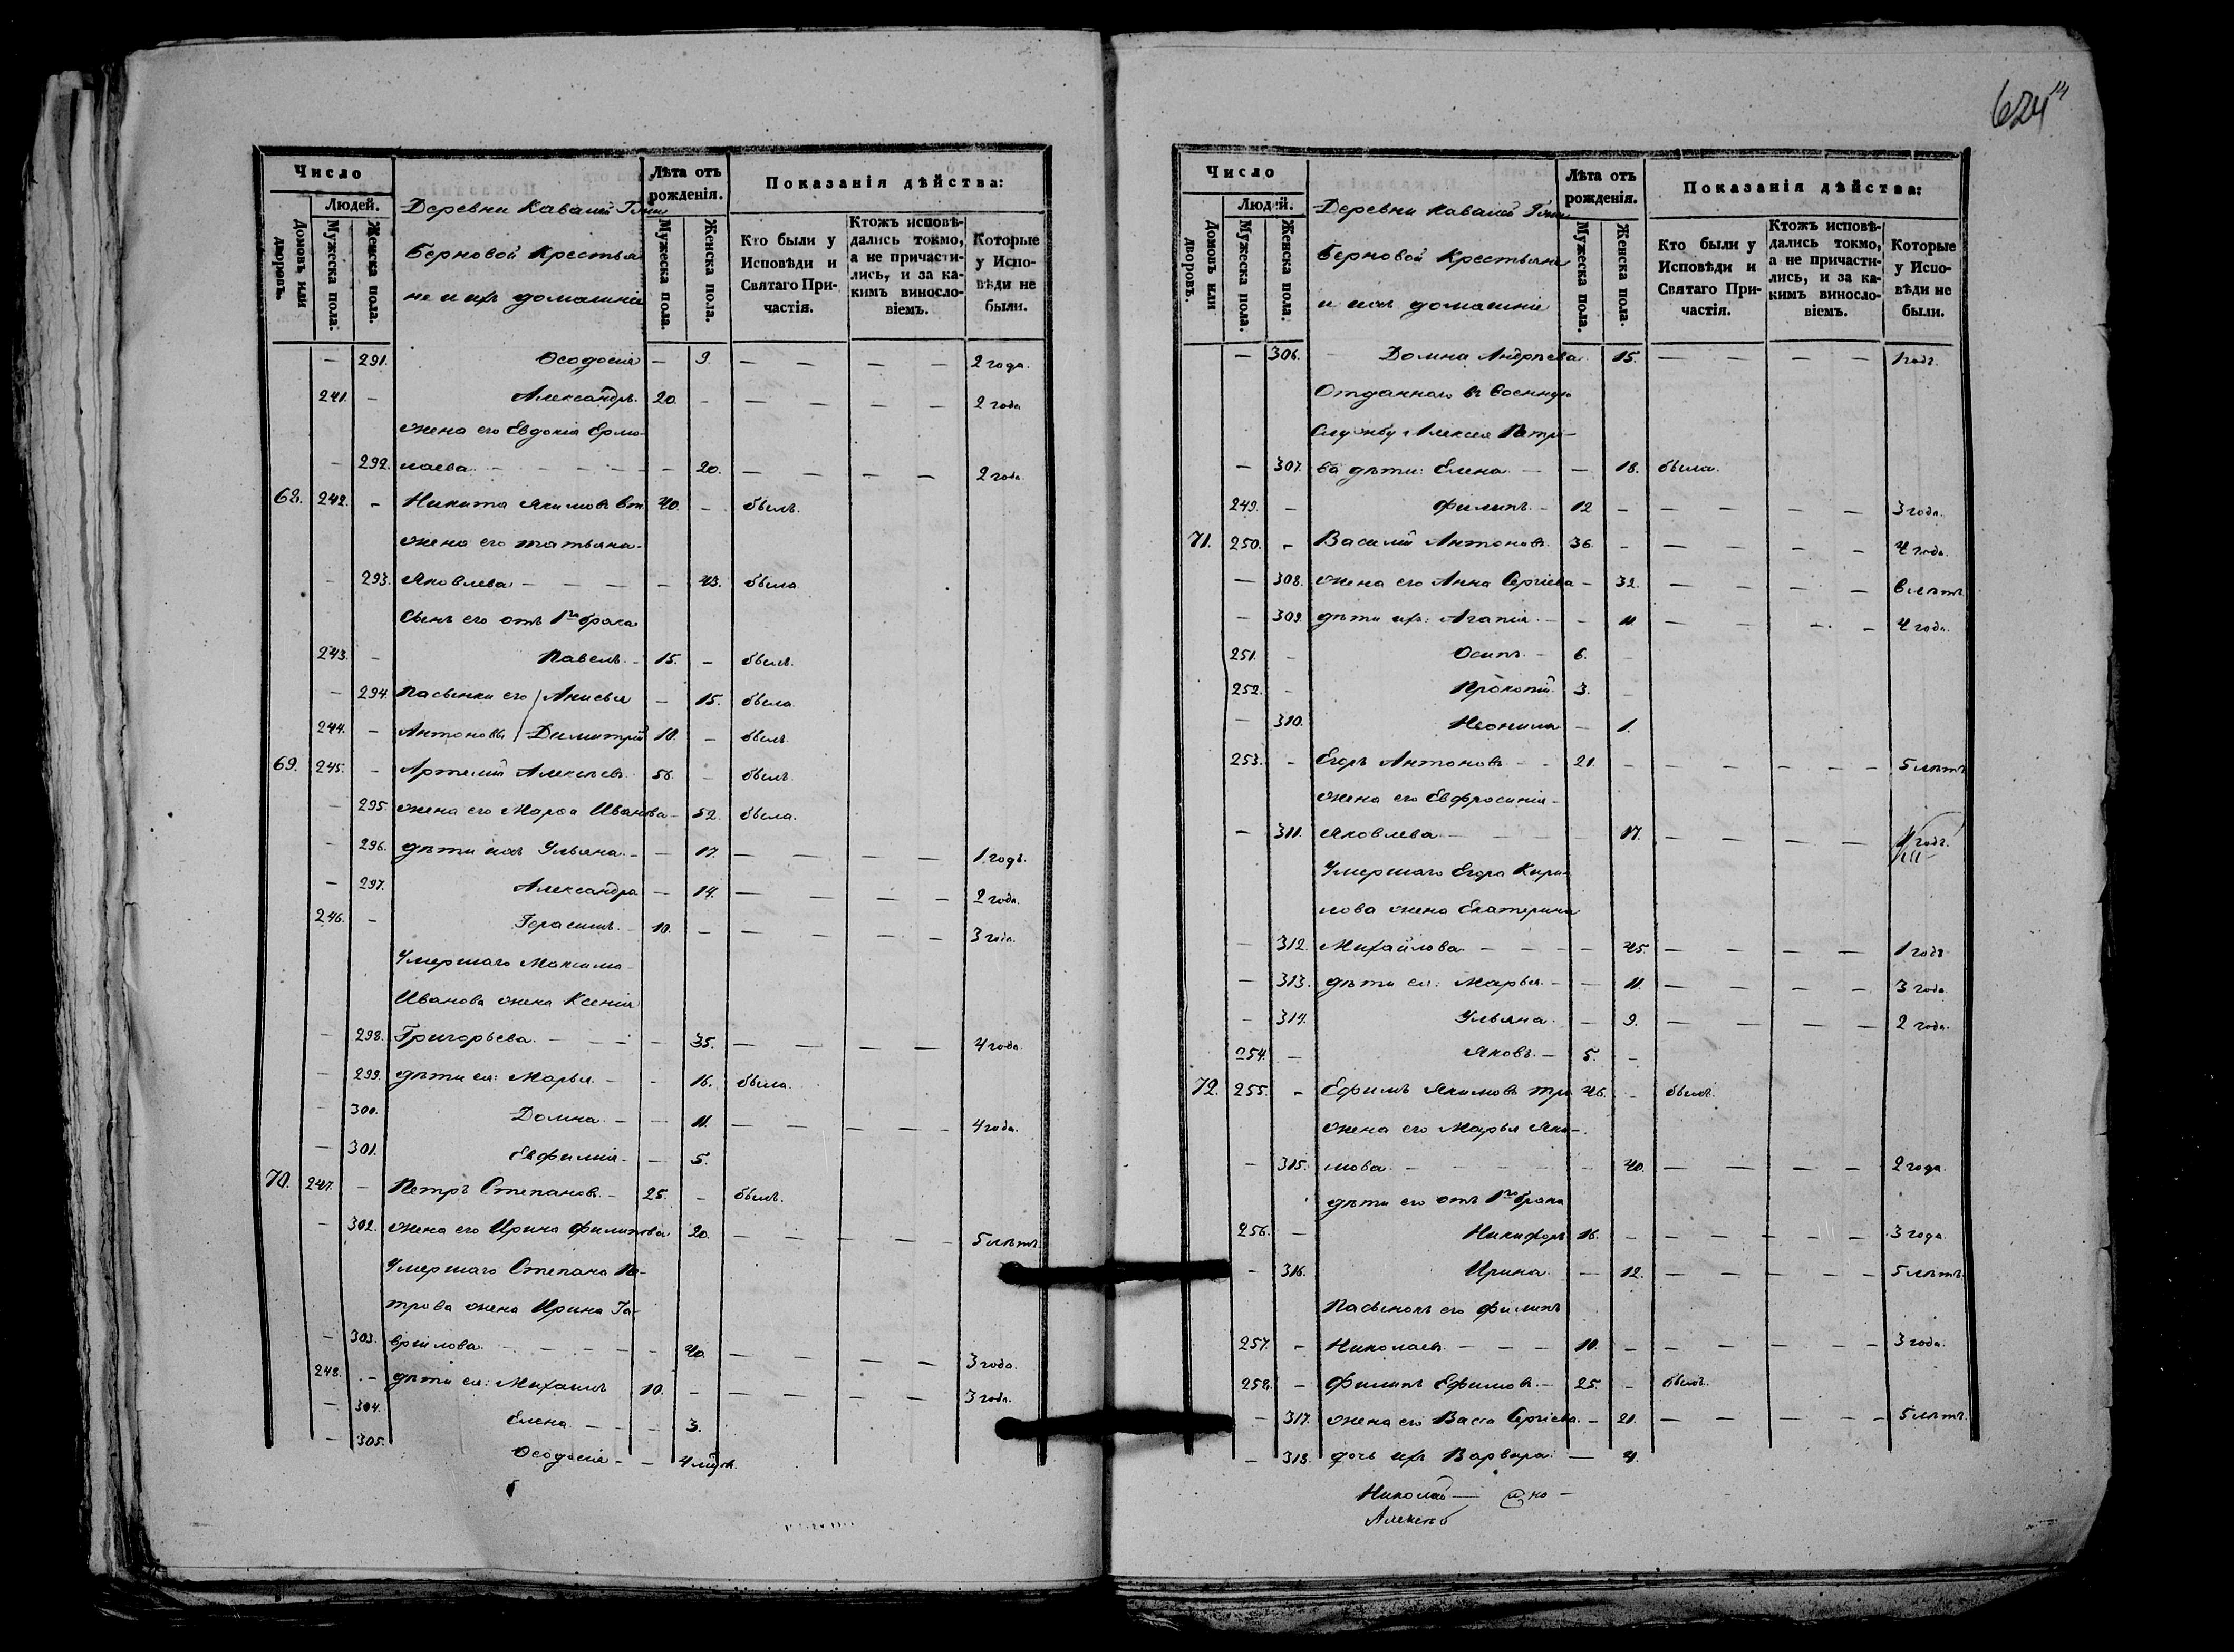 Число
Людей.
Домовъ или дворовъ.
Мужеска пола.
Женска пола.
Деревни Кавалей Г-жи
Берновой Крестья
не и ихъ домашніе
Лѣта отъ рожденія.
Мужеска пола.
Женска пола.
Показанія дѣйства:
Кто были у Исповѣди и Святаго Причастія.
Ктожъ исповѣдались токмо, а не причастились, и за какимъ винословіемъ.
Которые у Исповѣди не были.
— 291. Ѳеодосія — 9. — — — — 2 года.
241. — Александръ. 20. — — — — — 2 года
жена его Евдокія Ермо-
— 292. лаева. — — 20. — — — — 2 года
68. 242. — Никита Якимовъ вт. 40. — былъ.
жена его Татьяна-
— 293. Яковлева — — — — 43. была
Сынъ его отъ 1го брака
243. — Павелъ. — 15. — былъ.
— 294. Пасынки его Анисья — 15. была
244. — Антоновы Димитрій 10. — былъ
69. 245. — Артемій Алексѣевъ 56. — былъ
— 295. жена его Марѳа Иванова — 52. была.
— 296. дѣти ихъ Ульяна. — — 17. — — — — 1 годъ.
— 297. Александра — 14. — — — — 2 года.
246. — Герасимъ. — 10. — — — — — 3 года.
Умершаго Максима
Иванова жена Ксенія
— 298. Григорьева. — — — 35. — — — — 4 года
— 299. дѣти ея: Марья — — 16. была.
— 300. Домна. — — 11. — — — — 4 года.
— 301. Евфимія. — — 5.
70. 247. — Петръ Степановъ. — 25. — былъ.
— 302. жена его Ирина Филипова 20. — — — — — 5 лѣтъ.
Умершаго Степана Пе-
трова жена Ирина Га-
— 303. врилова. — — — — 40. — — — — 3 года.
248. — дѣти ея: Михаилъ 10. — — — — — 3 года.
— 304. Елена — — — 3.
— 305. Ѳеодосія — —
624
Число
Людей.
Домовъ или дворовъ.
Мужеска пола.
Женска пола.
Деревни Кавалей Г-жи
Берновой Крестьяне
и ихъ домашніе
Лѣта отъ рожденія.
Мужеска пола.
Женска пола.
Показанія дѣйства:
Кто были у Исповѣди и Святаго Причастія.
Ктожъ исповѣдались токмо, а не причастились, и за какимъ винословіемъ.
Которые у Исповѣди не были.
— 306. Домна Андрѣева. 15. — — — — 1 годъ.
Отданнаго въ военную
Службу Алексея Петро-
— 307. ва дѣти: Елена. — — 18. была.
249. — Филипъ. — 12 — — — — — 3 года.
71. 250. — Василій Антоновъ. 36. — — — — — 4 года.
— 308. жена его Анна Сергіева — 32. — — — — 6 лѣтъ
— 309. дѣти ихъ: Агапія. — — 11. — — — — 4 года.
251. — Осипъ. — 6. —
252. — Прокопій 3. —
— 310. Неонила — 1.
253. — Егоръ Антоновъ — — 21. — — — — — — 5 лѣтъ
жена его Евфросинія —
— 311. Яковлева — — — — 17. — — — — 1 годъ.
Умершаго Егора Кири-
лова жена Екатерина
— 312. Михайлова. — — — — 45. — — — — 1 годъ
— 313. дѣти ея: Марья. — — 11. — — — — 3 года
— 314. Ульяна. — 9. — — — — 2 года.
254. — Яковъ. — 5. —
72. 255. — Ефимъ Якимовъ тре 46. — былъ.
жена его Марья Яки-
— 315. мова. — — — — 40. — — — — 2 года
дѣти его отъ 1го брака
256. — Никифоръ 16. — — — — — — 3 года
— 316. Ирина. — 12. — — — — — 5 лѣтъ.
Пасынокъ его Филипъ
257. — Николаевъ. — — — 10. — — — — — — 3 года.
258. — Филипъ Ефимовъ. — 25. — былъ.
— 317. жена его Васса Сергіева. — 21. — — — — — 5 лѣтъ.
— 318. дочь ихъ Варвара. — 4.
Николай —